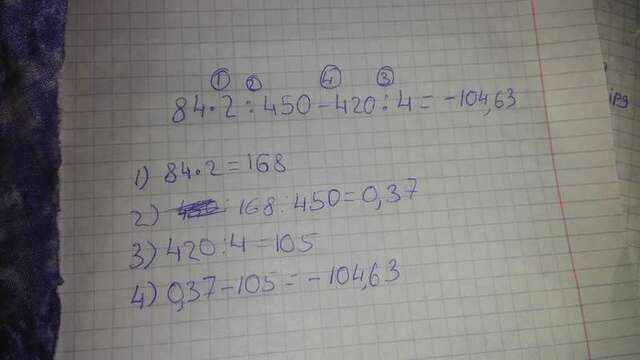 ① ② ④ ③
84·2:450-420:4=-104,63
1) 84·2=168
2) 168:450=0,37
3) 420:4=105
4) 0,37-105=-104,63